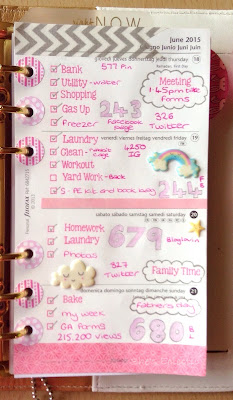 NOW
June 2015
Juno Juni Juin
jueves donnerstag jeudi thursday 18
Bank 577 Pin
Utility - water
Shopping
Meeting
1:45pm take
forms
Gas Up 243
Freezer Facebook
page
326
Twitter
venerdì viernes freitag vendredi friday 19
Laundry
Clean - 4250
IG
Workout
Yard Work - Back
S - PE kit and book away 244 FB
sabato sábado samstag samedi saturday 20
Homework
Laundry 679 Bloglovin
Photos
327
Twitter
Family Time
domenica domingo sonntag dimanche sunday 21
Bake
Fathers Day
my week
GA forms 680 BL
215,200 views
Personal filofax
© 2013